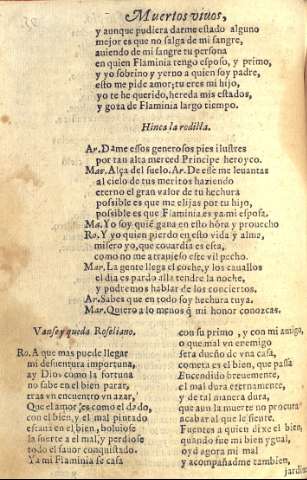 Muertos viuos,
y aunque pudiera darme estado alguno
mejor es que no salga de mi sangre,
auiendo de mi sangre tu persona
en quien Flaminia tengo esposo, y primo,
y yo sobrino y yerno a quien soy padre,
esto me pide amor; tu eres mi hijo,
yo te he querido, hereda mis estados,
y goza de Flaminia largo tiempo.
Hinca la rodilla.
Ar. Dame essos generosos pies ilustres
por tan alta merced Principe heroyco.
Mar. Alça del suelo. Ar. De esse me leuantas
al cielo de tus meritos haziendo
eterno el gran valor de tu hechura
possible es que me elijas por tu hijo,
possible es que Flaminia es ya mi esposa.
Ma. Yo soy quiẽ gana en esto hõra y prouecho
Ro. Y yo quien pierdo en esto vida y alma,
misero yo, que couardia es esta,
como no me atrauieso este vil pecho.
Mar. La gente llega el coche, y los cauallos
el dia es pardo alla tendre la noche,
y podremos hablar de los conciertos.
Ar. Sabes que en todo soy hechura tuya.
Mar. Quiero a lo menos q̃ mi honor conozcas.
Vanse y queda Roseliano.
Ro. A que mas puede llegar
mi desuentura importuna,
ay Dios como la fortuna
no sabe en el bien parar,
tras vn encuentro vn azar,
Que el amor es como el dado,
con el bien, y el mal pintado
estaua en el bien, boluiose
la suerte a el mal, y perdiose
todo el fauor conquistado.
Ya mi Flaminia se casa
con su primo, y con mi amigo,
o que mal vn enemigo
sera dueño de vna casa,
cometa es el bien, que passa
Encendido breuemente,
el mal dura eternamente,
y de tal manera dura,
que aun la muerte no procura
acabar al que le siente.
Fuentes a quien dize el bien,
quando fue mi bien ygual,
oyd agora mi mal
y acompañadme tambien,
jardin